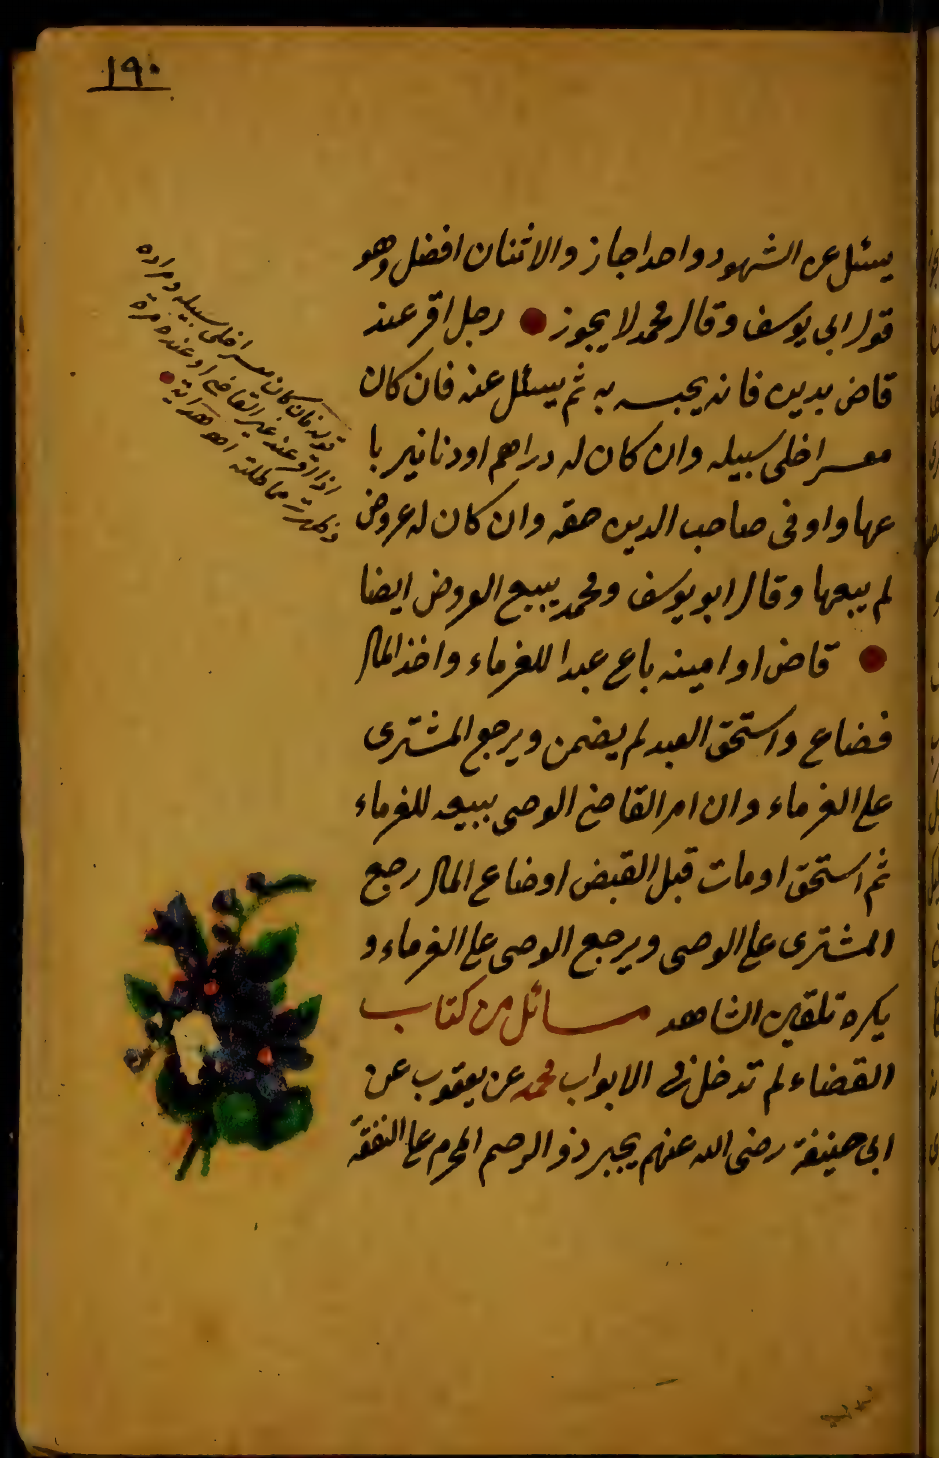 ١٩٠
يسئل عن الشهود واحدا جاز والاثنان افضل وهو
قول ابى يوسف وقال محمد لا يجوز رجل اقر عند
قاض بدين فانه يحبسه به ثم يسئل عنه فان كان
معسرا خلى سبيله وان كان له دراهم او دنانير با
عها واوفى صاحب الدين حقه وان كان له عروض
لم يبعها وقال ابو يوسف ومحمد يبيع العروض ايضا
قاض او امينه باع عبدا للغرماء واخذ المال
فضاع واستحق العبد لم يضمن ويرجع المشترى
على الغرماء وان امر القاضى الوصى ببيعه للغرماء
ثم استحق او مات قبل القبض او ضاع المال رجع
المشترى على الوصى ويرجع الوصى على الغرماء و
يكره تلقين الشاهد مسائل من كتاب
القضاء لم تدخل فى الابواب محمد عن يعقوب عن
ابى حنيفة رضى الله عنهم يجبر ذو الرحم المحرم على النفقة
قوله فان كان معسرا خلى سبيله ومراده
اذا اقر عند غير القاضى او عنده مرة
وظهرت مماطلته اهـ هداية